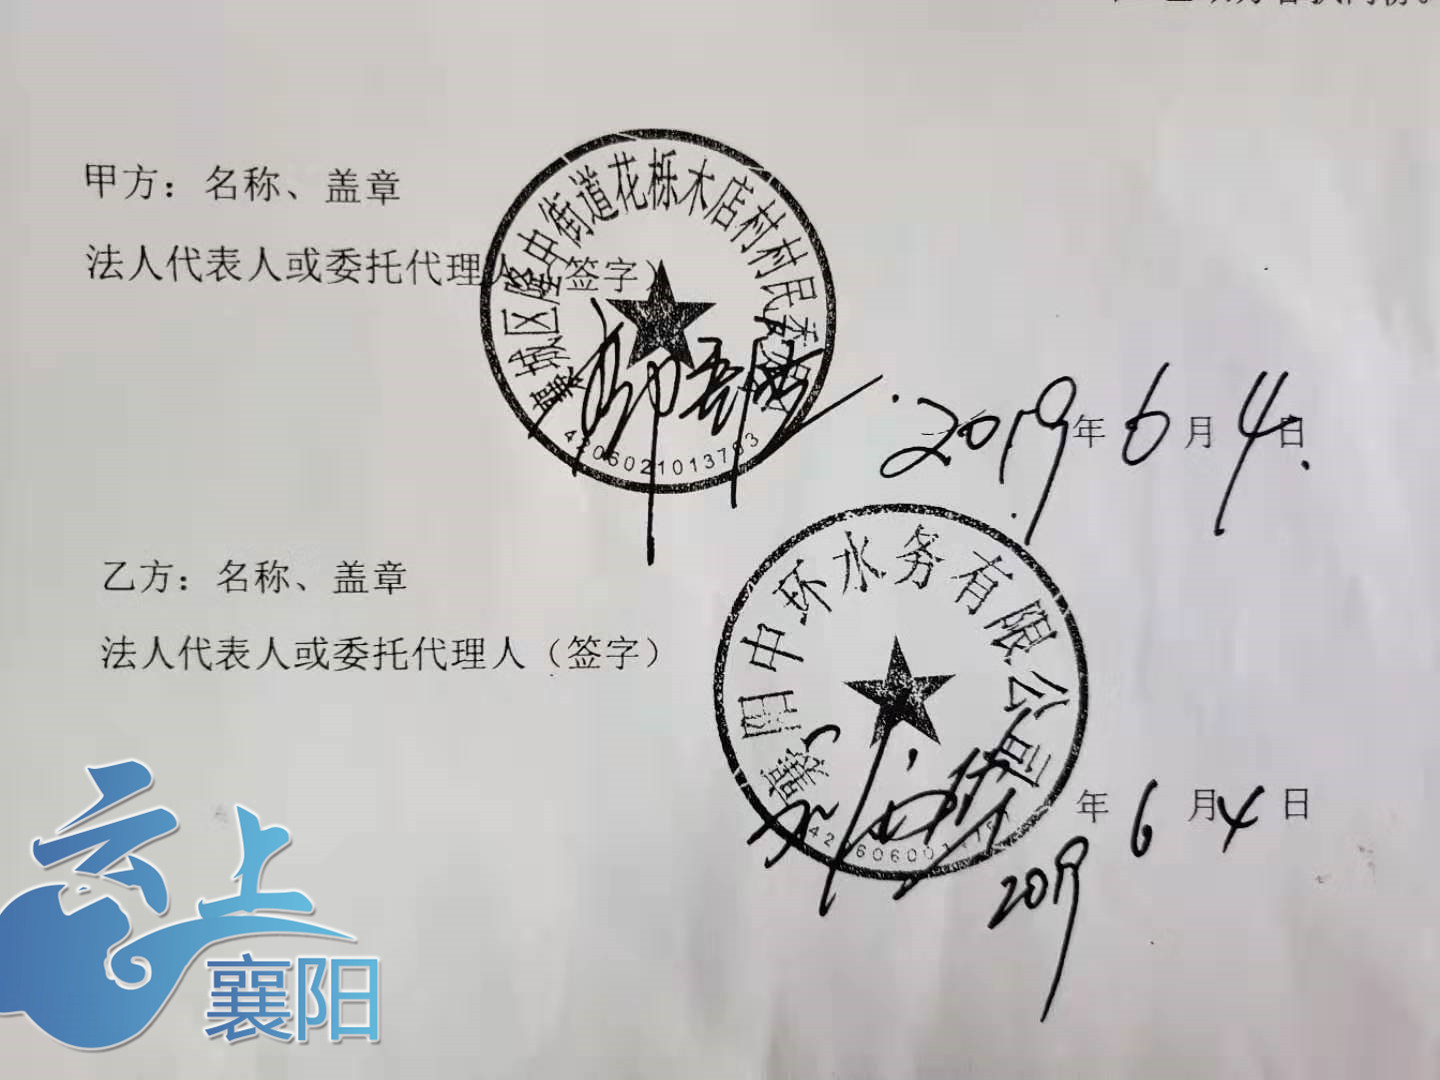 甲方：名称、盖章
法人代表人或委托代理人（签字）
襄城区隆中街道花栎木店村村民委员会
2019年6月4日
乙方：名称、盖章
法人代表人或委托代理人（签字）
襄阳中环水务有限公司
2019年6月4日
云上
襄阳